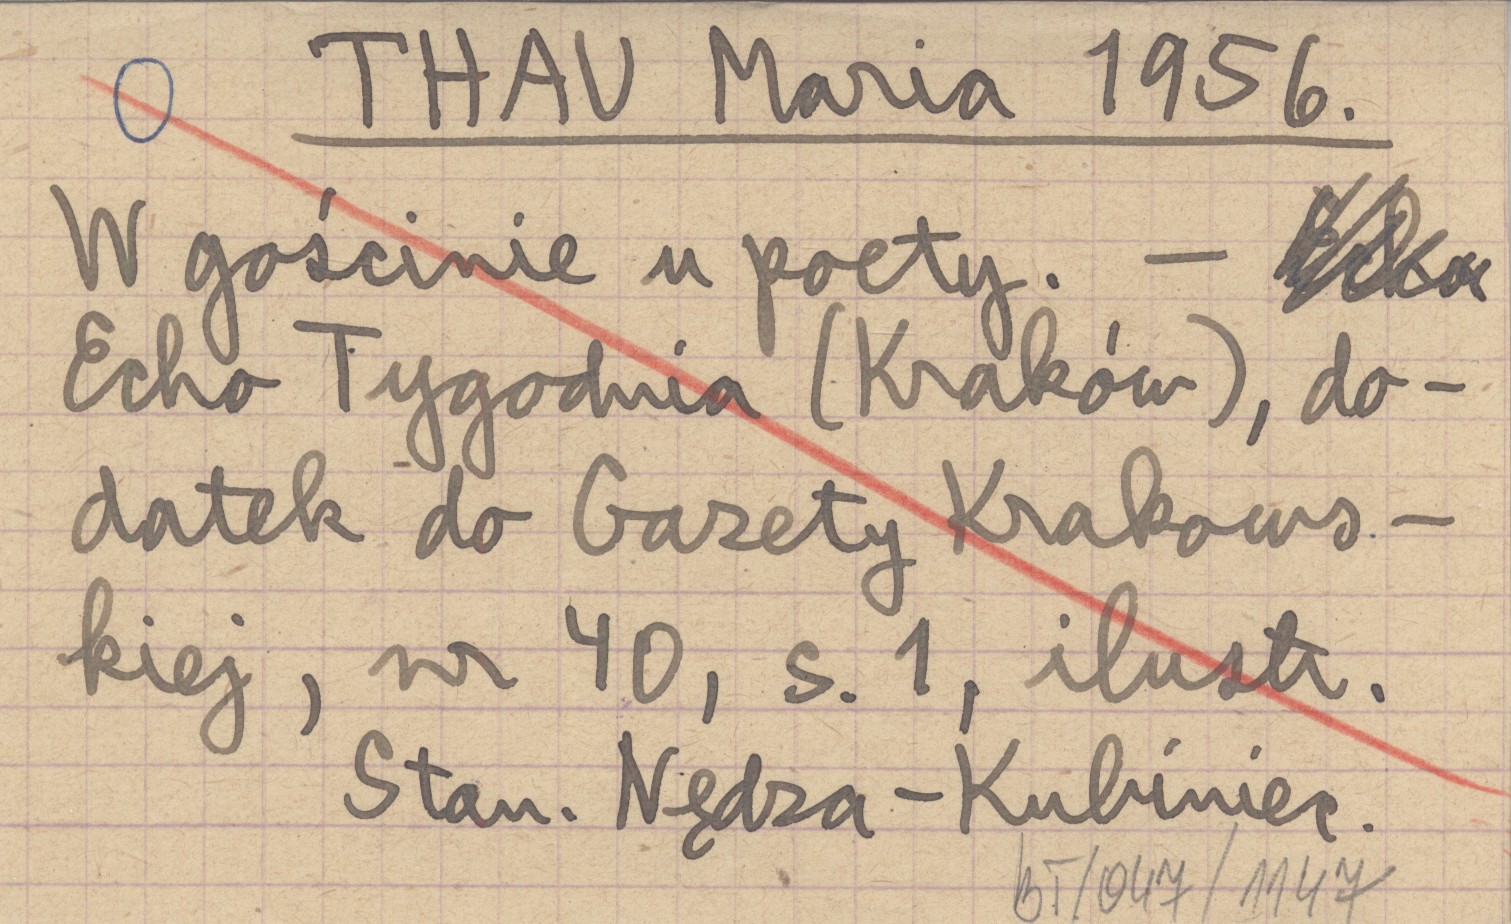 THAU Maria 1956.
W gościnie u poety. —
Echo Tygodnia (Kraków), do-
datek do Gazety Krakows-
kiej, nr 40, s. 1, ilustr.
Stan. Nędza-Kubiniec.
BT/047/1147